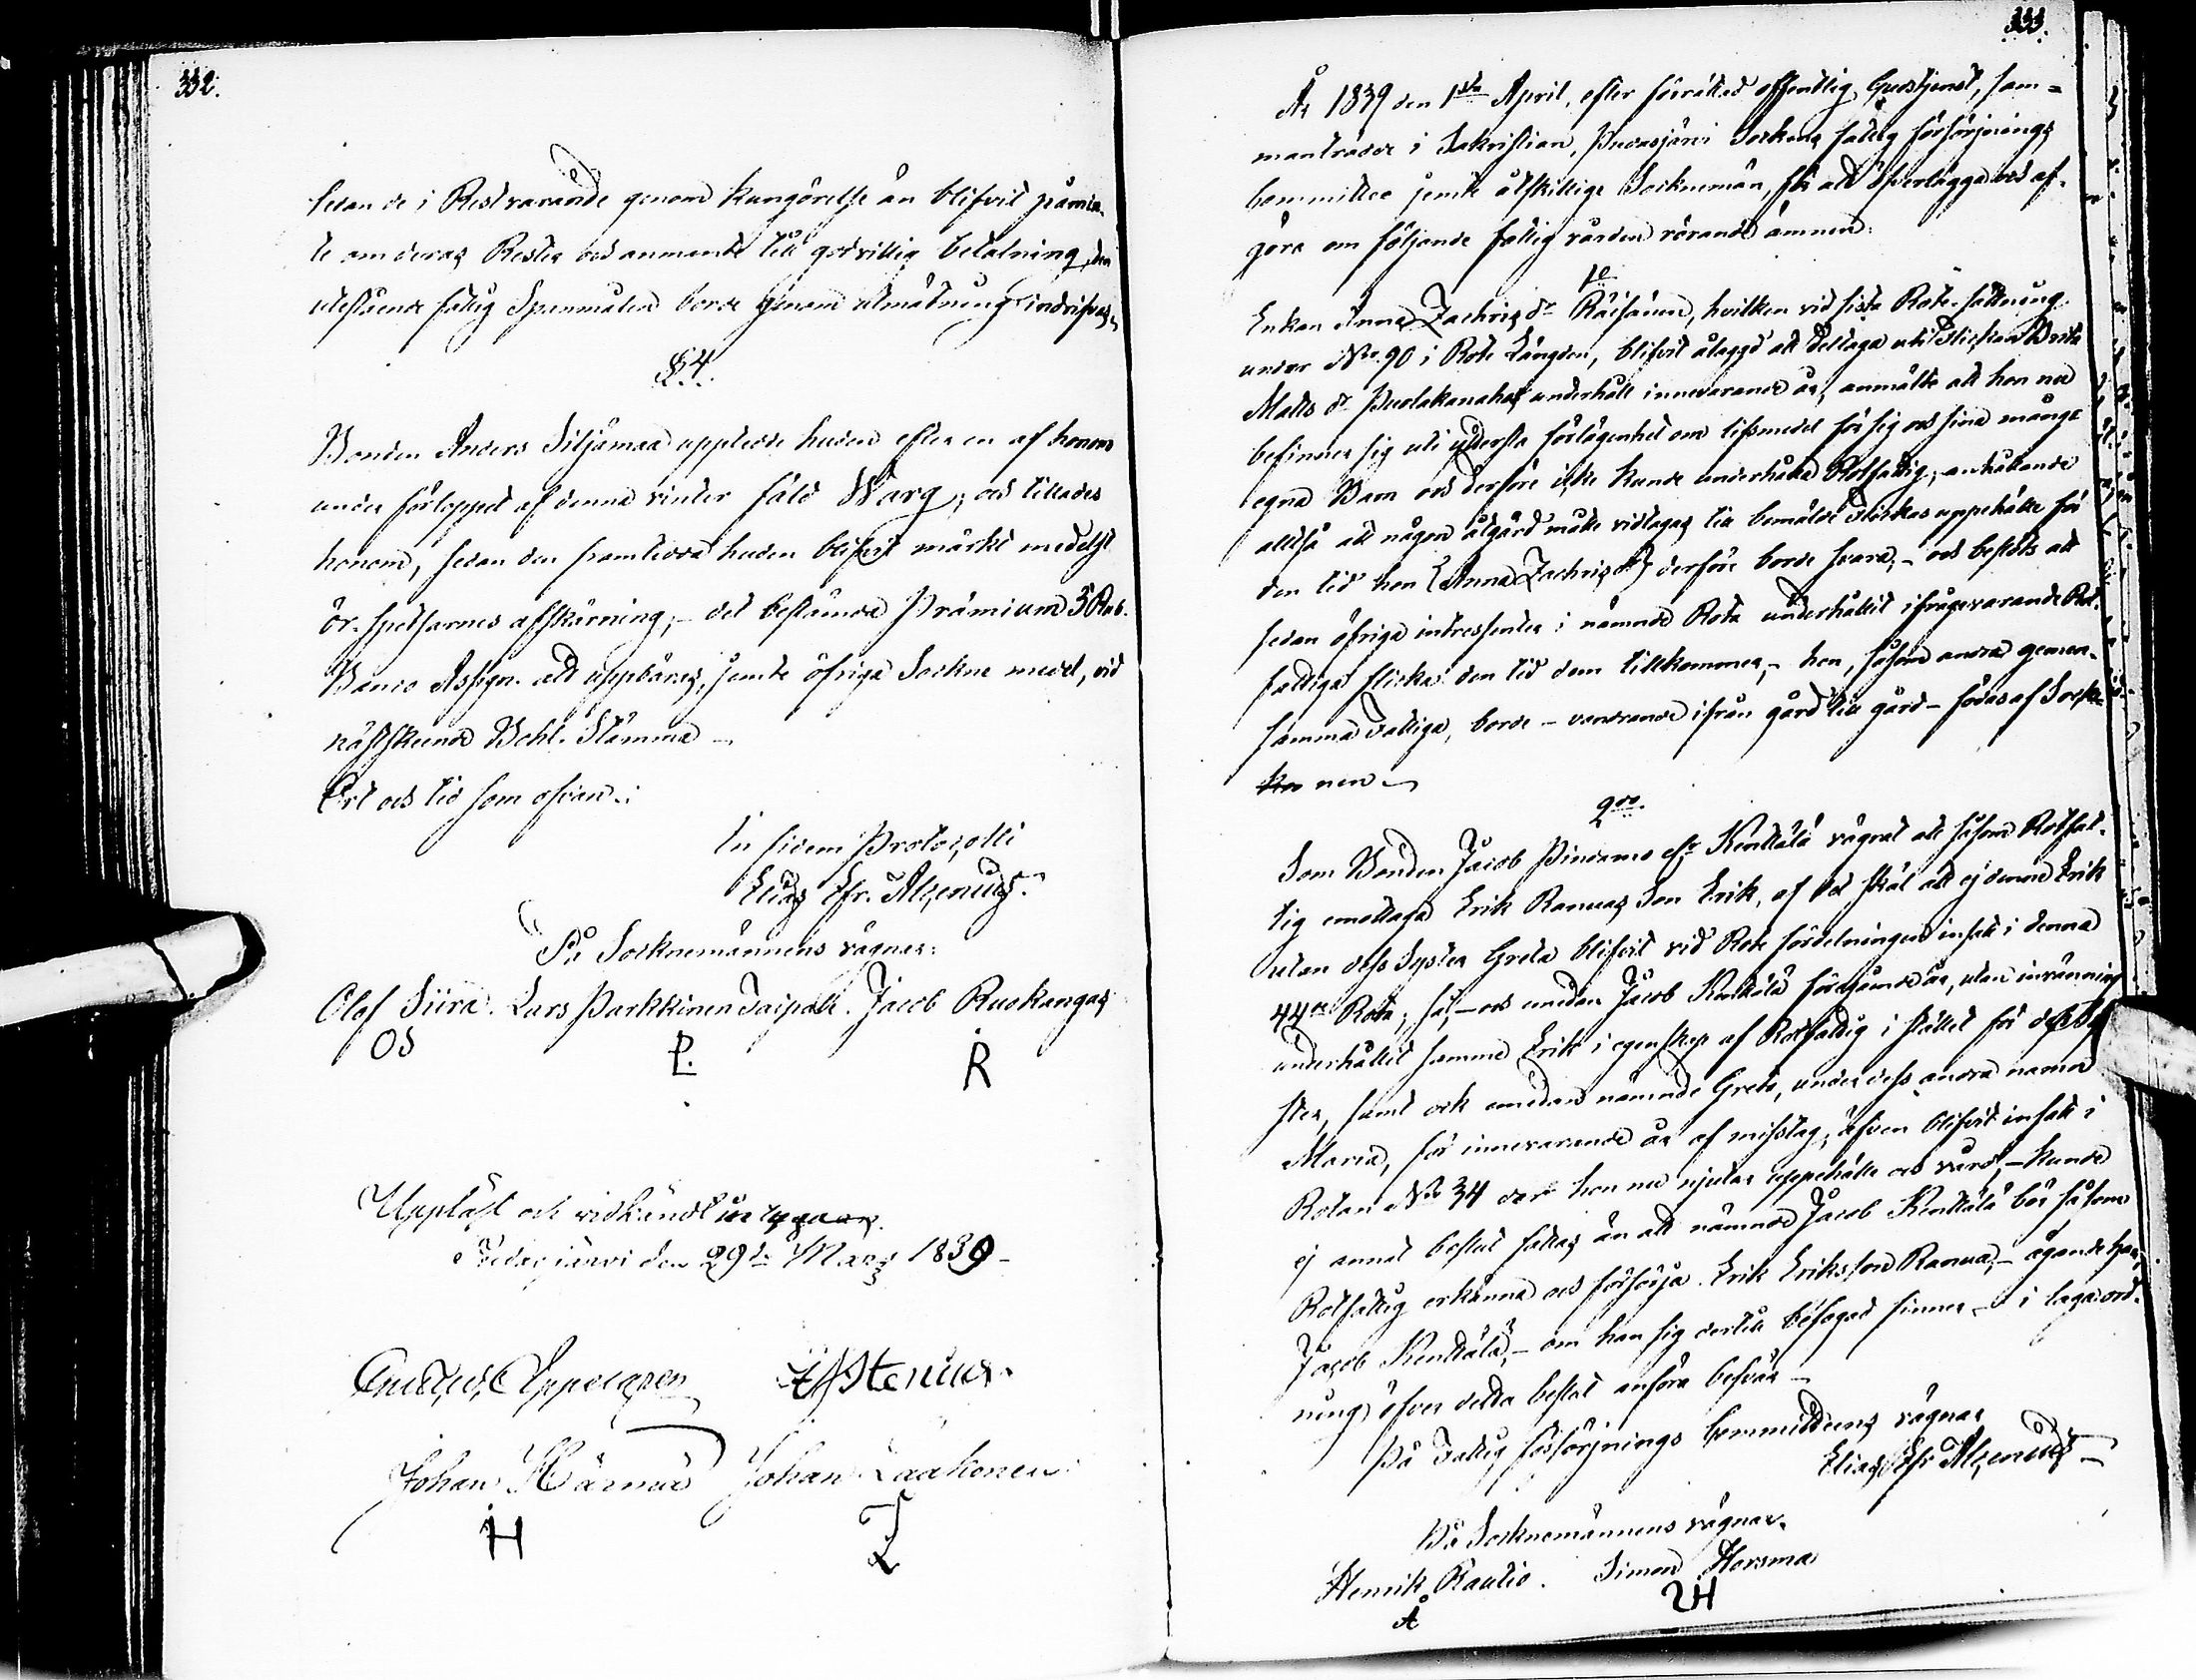 332.
sedan de i Restvarande genom kungörelse än blifvit påmin-
te om deras Rester och anmante till godvillig betalning, den
utestående fattig Spanmålen borde genom utmätning indrifvas,
§ 4.
Bonden Anders Siljämaa upptedde huden efter en af honom
under förloppet af denna vinter fäld Warg; och tillades
honom, sedan den framtedda huden blifvit märkt medelst
ör-spetsarnes afskärning, – det bestämda Præmium 3 Rub.
Banco Assign. att uppbäras, jemte öfriga Sockne medel, vid
nästskeende Behl. Stämma –
Ort och tid som ofvan.:
In fidem Protocolli
Elias Efr. Alcenius.
På Socknemännens vägnar:
Olof Siira. Lars Parkkinen Taipale. Jacob Ruokangas
OS P. R
Uppläst och vidkändt
Pudasjärvi den 29de Mars 1839 –
Gustaf Appelgren
Johan Härmä Johan Laakonen
H
333.
År 1839 den 1sta April, efter förrättad offentlig Gudstjenst, sam=
manträdde i Sakristian, Pudasjärvi Sockens fattig försörjnings
Committee jemte åtskillige Socknemän, för att öfverlägga och af-
göra om följande fattig vården rörande ämnen:
1o
Enkan Anna Zachrisdr Räisänen, hvilken vid sista Rote-sättning
under No 90 i Rote Längden, blifvit ålaggd att deltaga uti Flickan Brita
Matts dr Puolakanahos underhåll innevarande år, anmälte att hon nu
befinner sig uti yttersta förlägenhet om lifsmedel för sig och sina många
egna Barn och derföre icke kunde underhålla Rotfattig; anhållande
alltså att någon åtgärd måtte vidtagas till bemälde Flickas uppehälle för
den tid hon (Anna Zachrisdr) derföre borde svara, – och beslöts att
sedan öfriga intressenter i nämnde Rota underhållit ifrågavarande Rot-
fattiga flicka den tid dem tillkommer, – hon, såsom andra gemen-
samma Fattiga, borde – vandrande ifrån gård till gård – födas af Sock-
nen –
2do.
Som Bonden Jacob Pindamo eft Kenttälä vägrat att såsom Rotfat-
tig emottaga Erik Ranuas Son Erik, af det skäl att ej denne Erik
utan dess Syster Greta blifvit vid Rote fördelningen insatt i denna
44de Rota; så, – och emedan Jacob Kenttälä förstnämnde år, utan invänning
underhållit samme Erik i egenskap af Rotfattig i stället för dess Sy-
ster, samt och emedan nämnde Greta, under dess andra namn
Maria, för innevarande år af misstag, äfven blifvit insatt i
Rotan No 34 der hon nu njuter uppehälle och vård, – kunde
ej annat beslut fattas än att nämnde Jacob Kenttälä bör såsom
Rotfattig erkänna och försörja Erik Eriksson Ranua, – ägande han,
Jacob Kenttälä, – om han sig dertill befogad finner – i laga ord-
ning, öfver detta beslut anföra besvär –
På Fattig försörjnings Committéens vägnar
Elias Efr Alcenius –
På Socknemännens vägnar.
Henrik Rautio. Simon Horsma
A SH